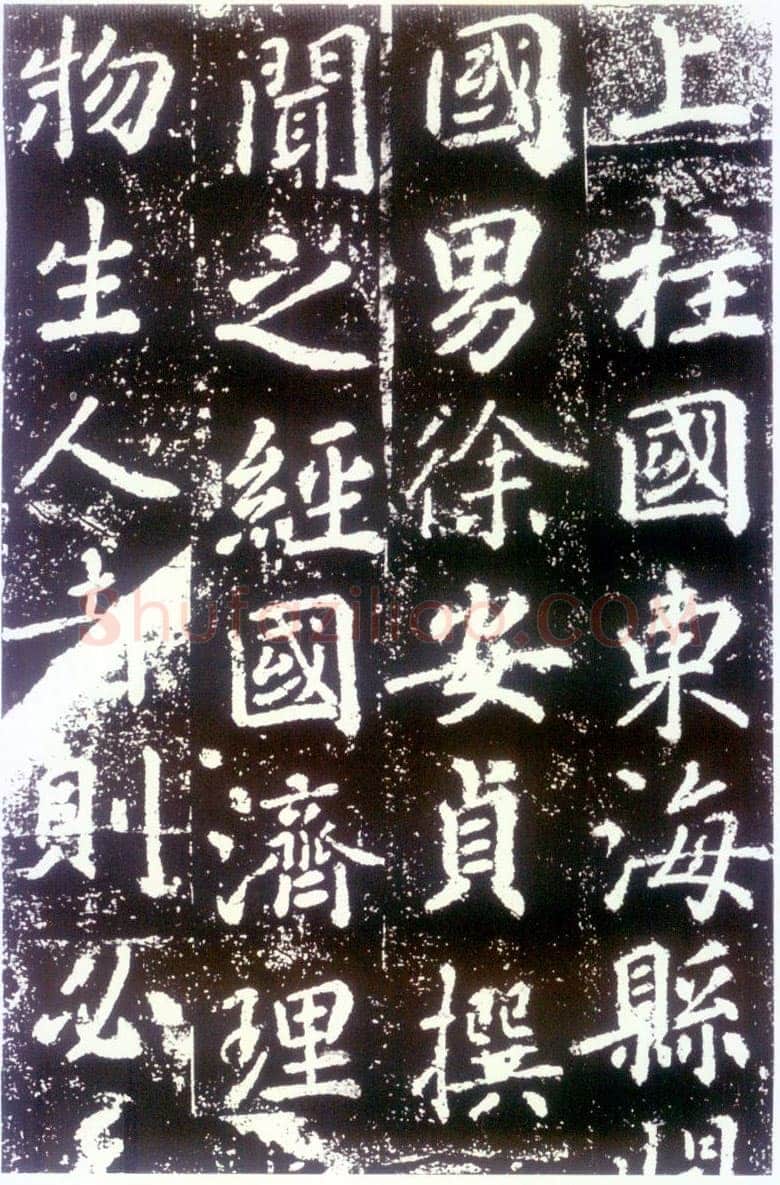 上柱國東海縣開
國男徐安貞撰
聞之經國濟理
物生人幸則必
Shufaziliao.COM